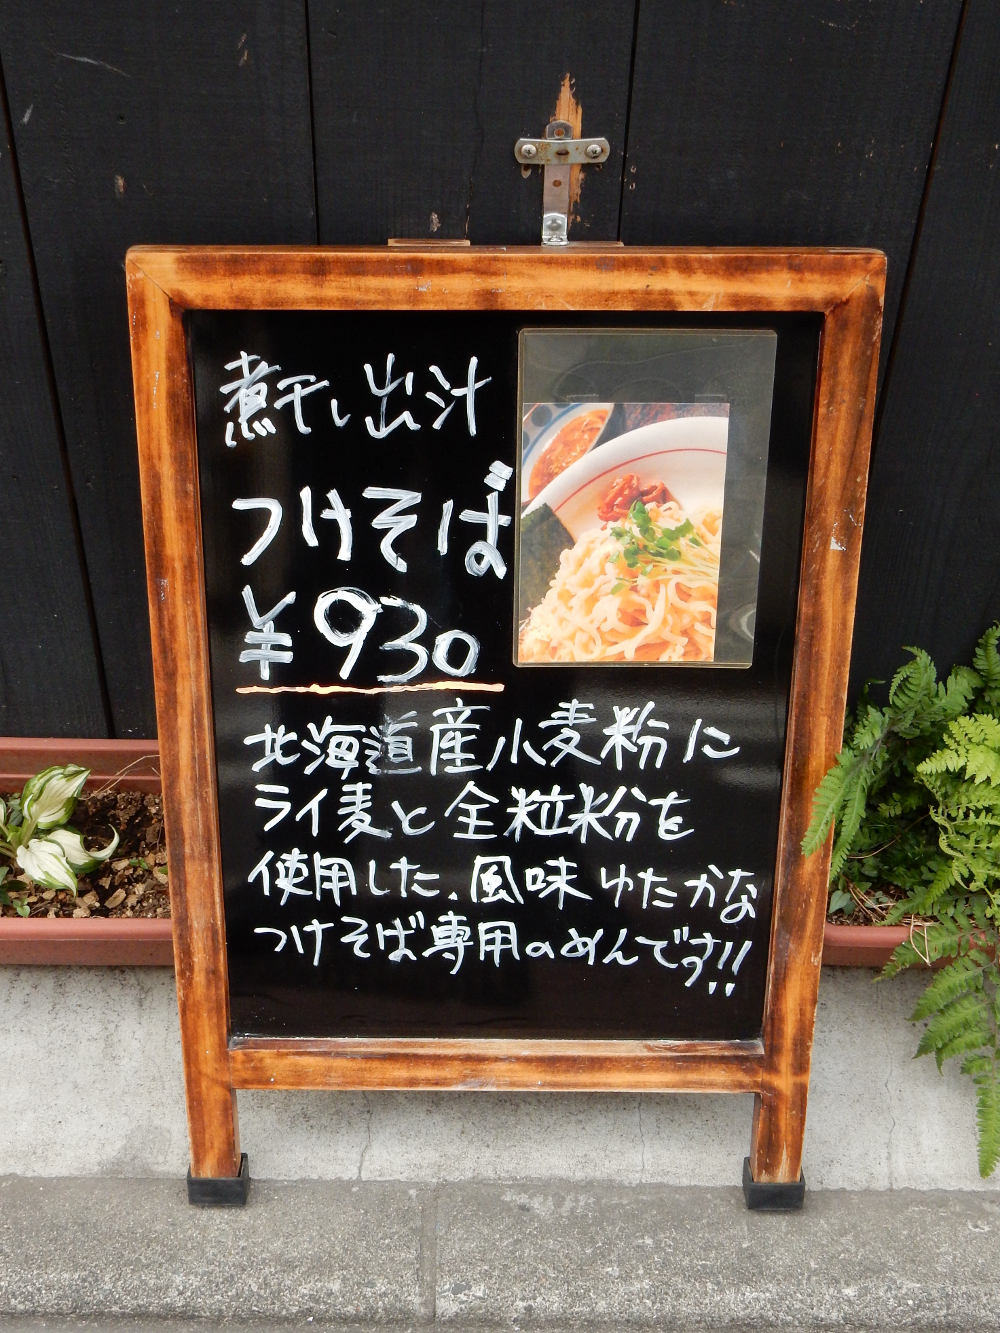 煮干し出汁
つけそば
¥930
北海道産小麦粉に
ライ麦と全粒粉を
使用した、風味ゆたかな
つけそば専用のめんです!!